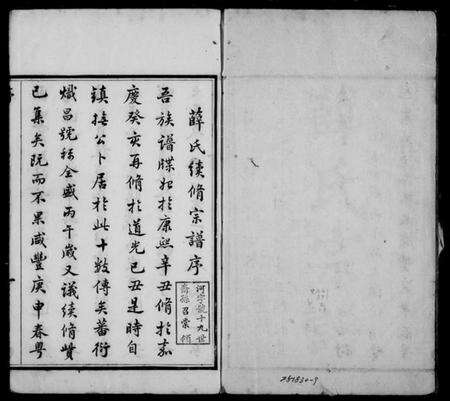 薛氏續脩宗譜序
吾族譜牒始於康熙辛丑脩於嘉
慶癸亥再脩於道光己丑是時自
鎮接公卜居於此十數傳矣蕃衍
熾昌號稱全盛丙午歲又議續脩貲
已集矣阮而不果咸豐庚申春粵
河字號十九世
裔孫召棠領
781830-9